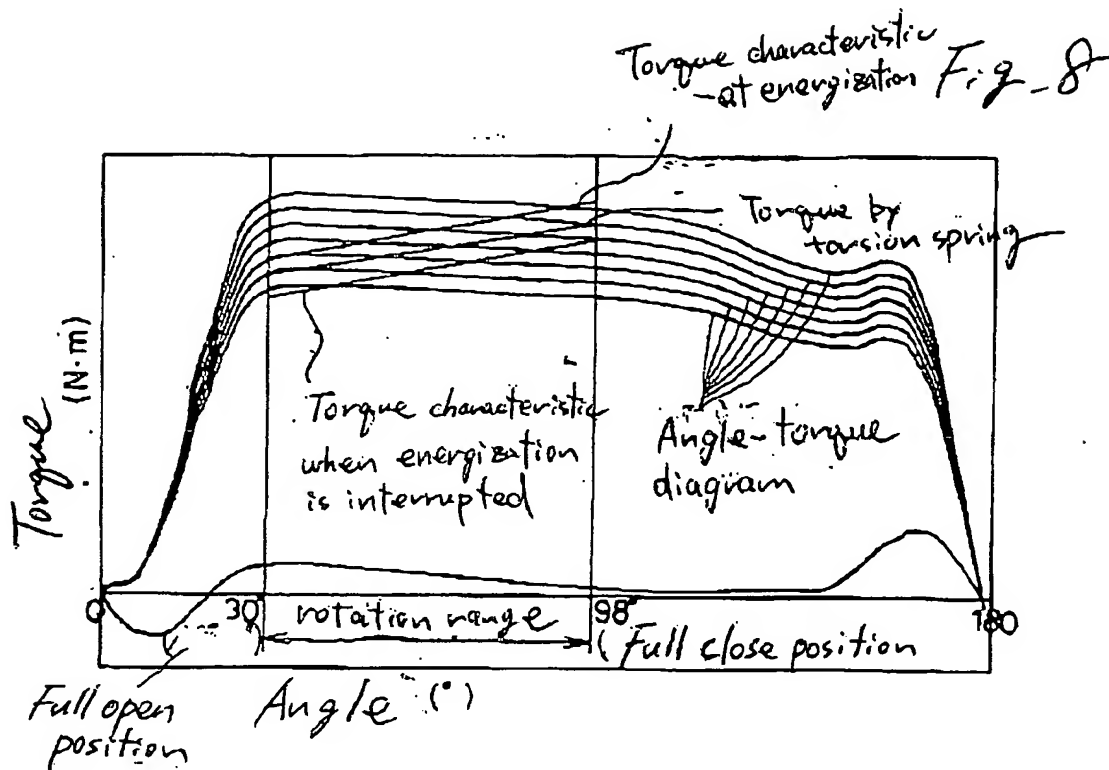 Torque characteristic
at energization
Fig_8
Torque by
torsion spring
Torque (N·m)
Torque characteristic
when energization
is interrupted
Angle-torque
diagram
0
30°
rotation range
98°
180
Full close position
Full open
position
Angle (°)